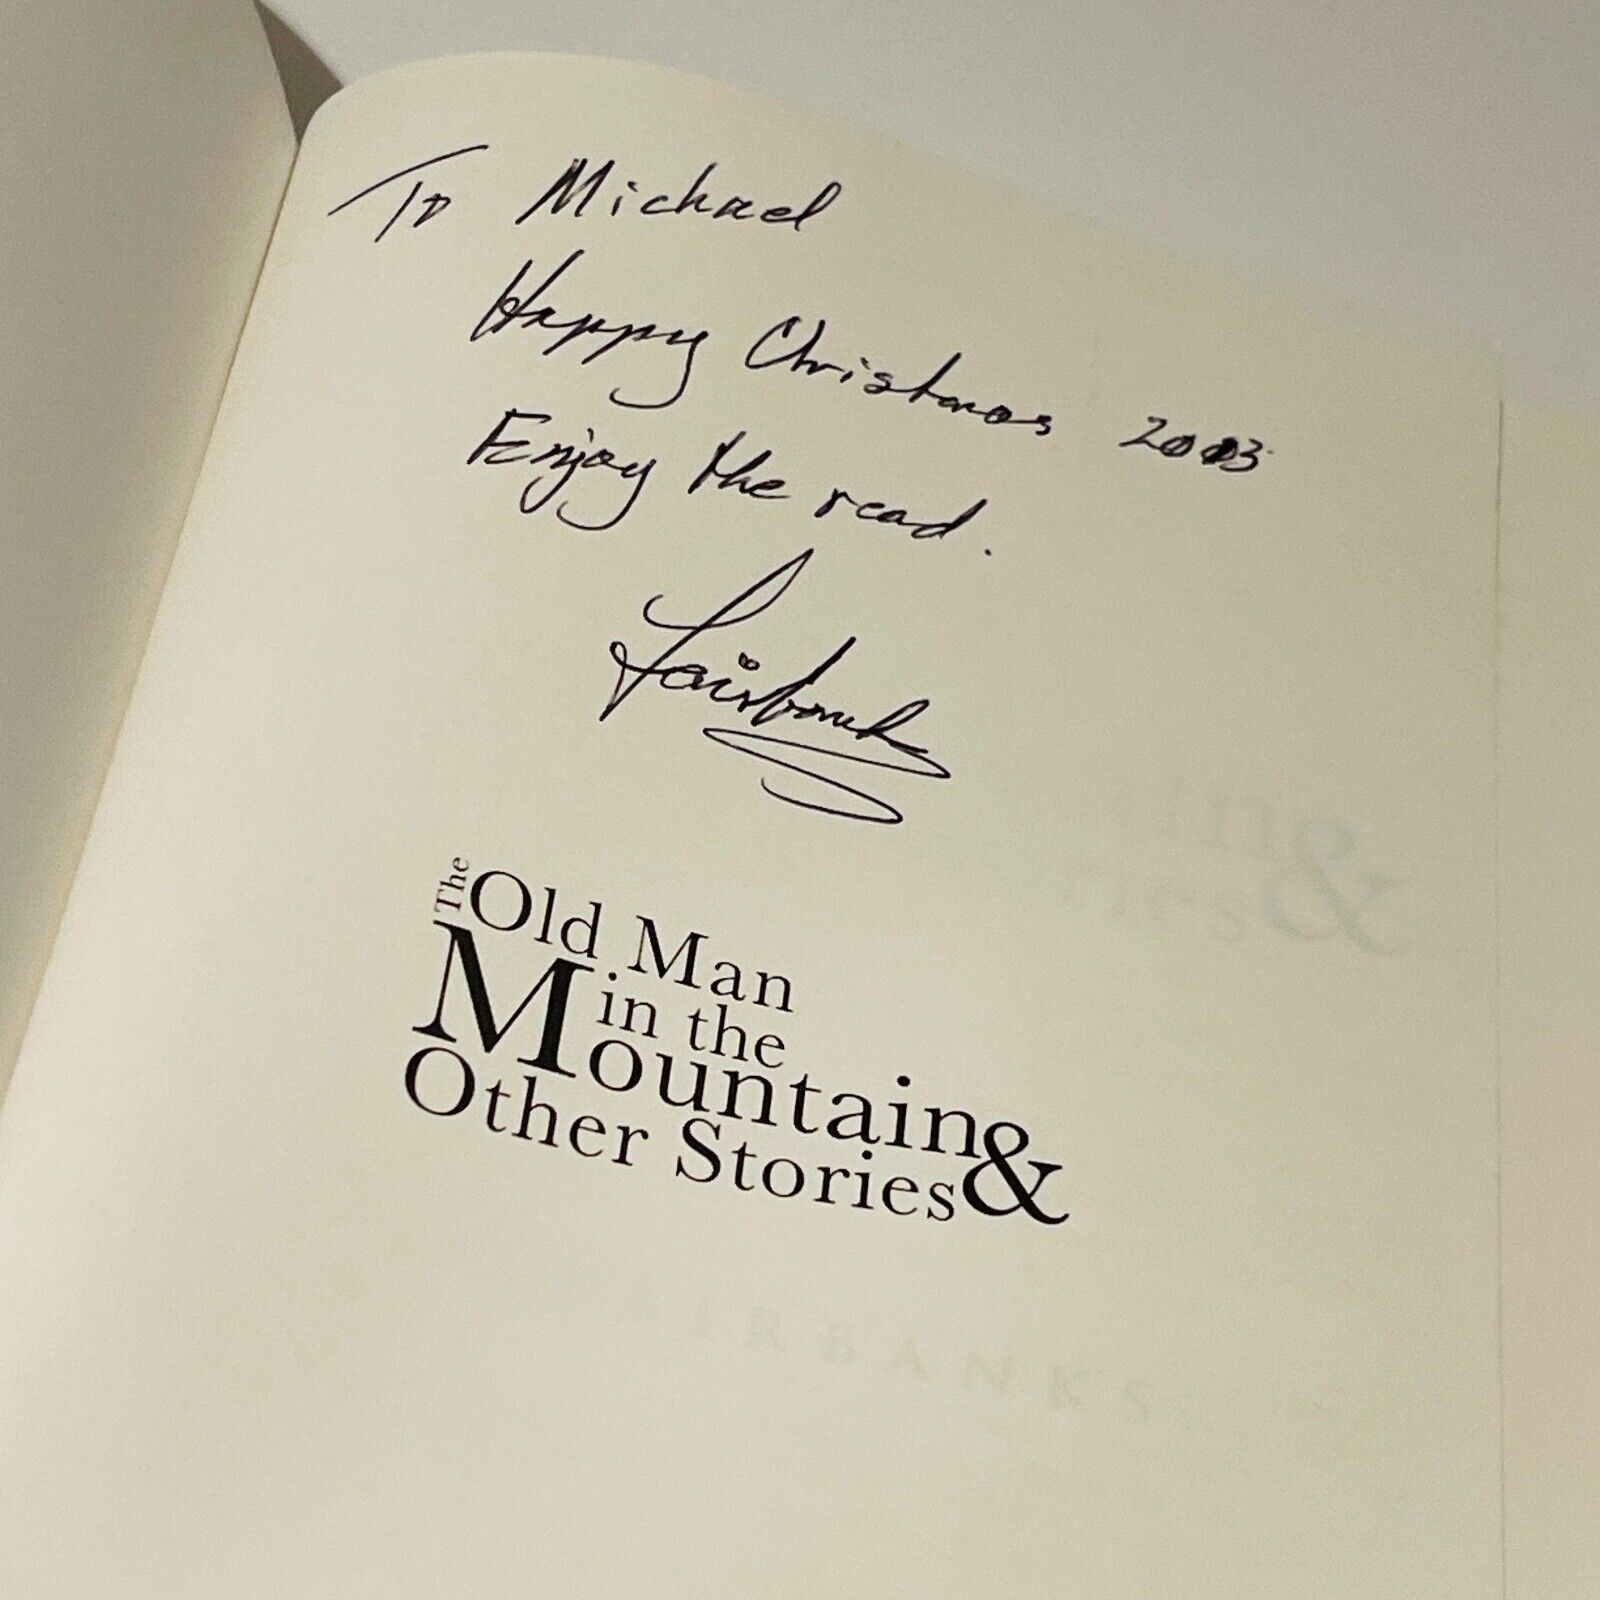 To Michael
Happy Christmas
Enjoy the read.
Fairbank
The Old Man
in the
Mountain &
Other Stories